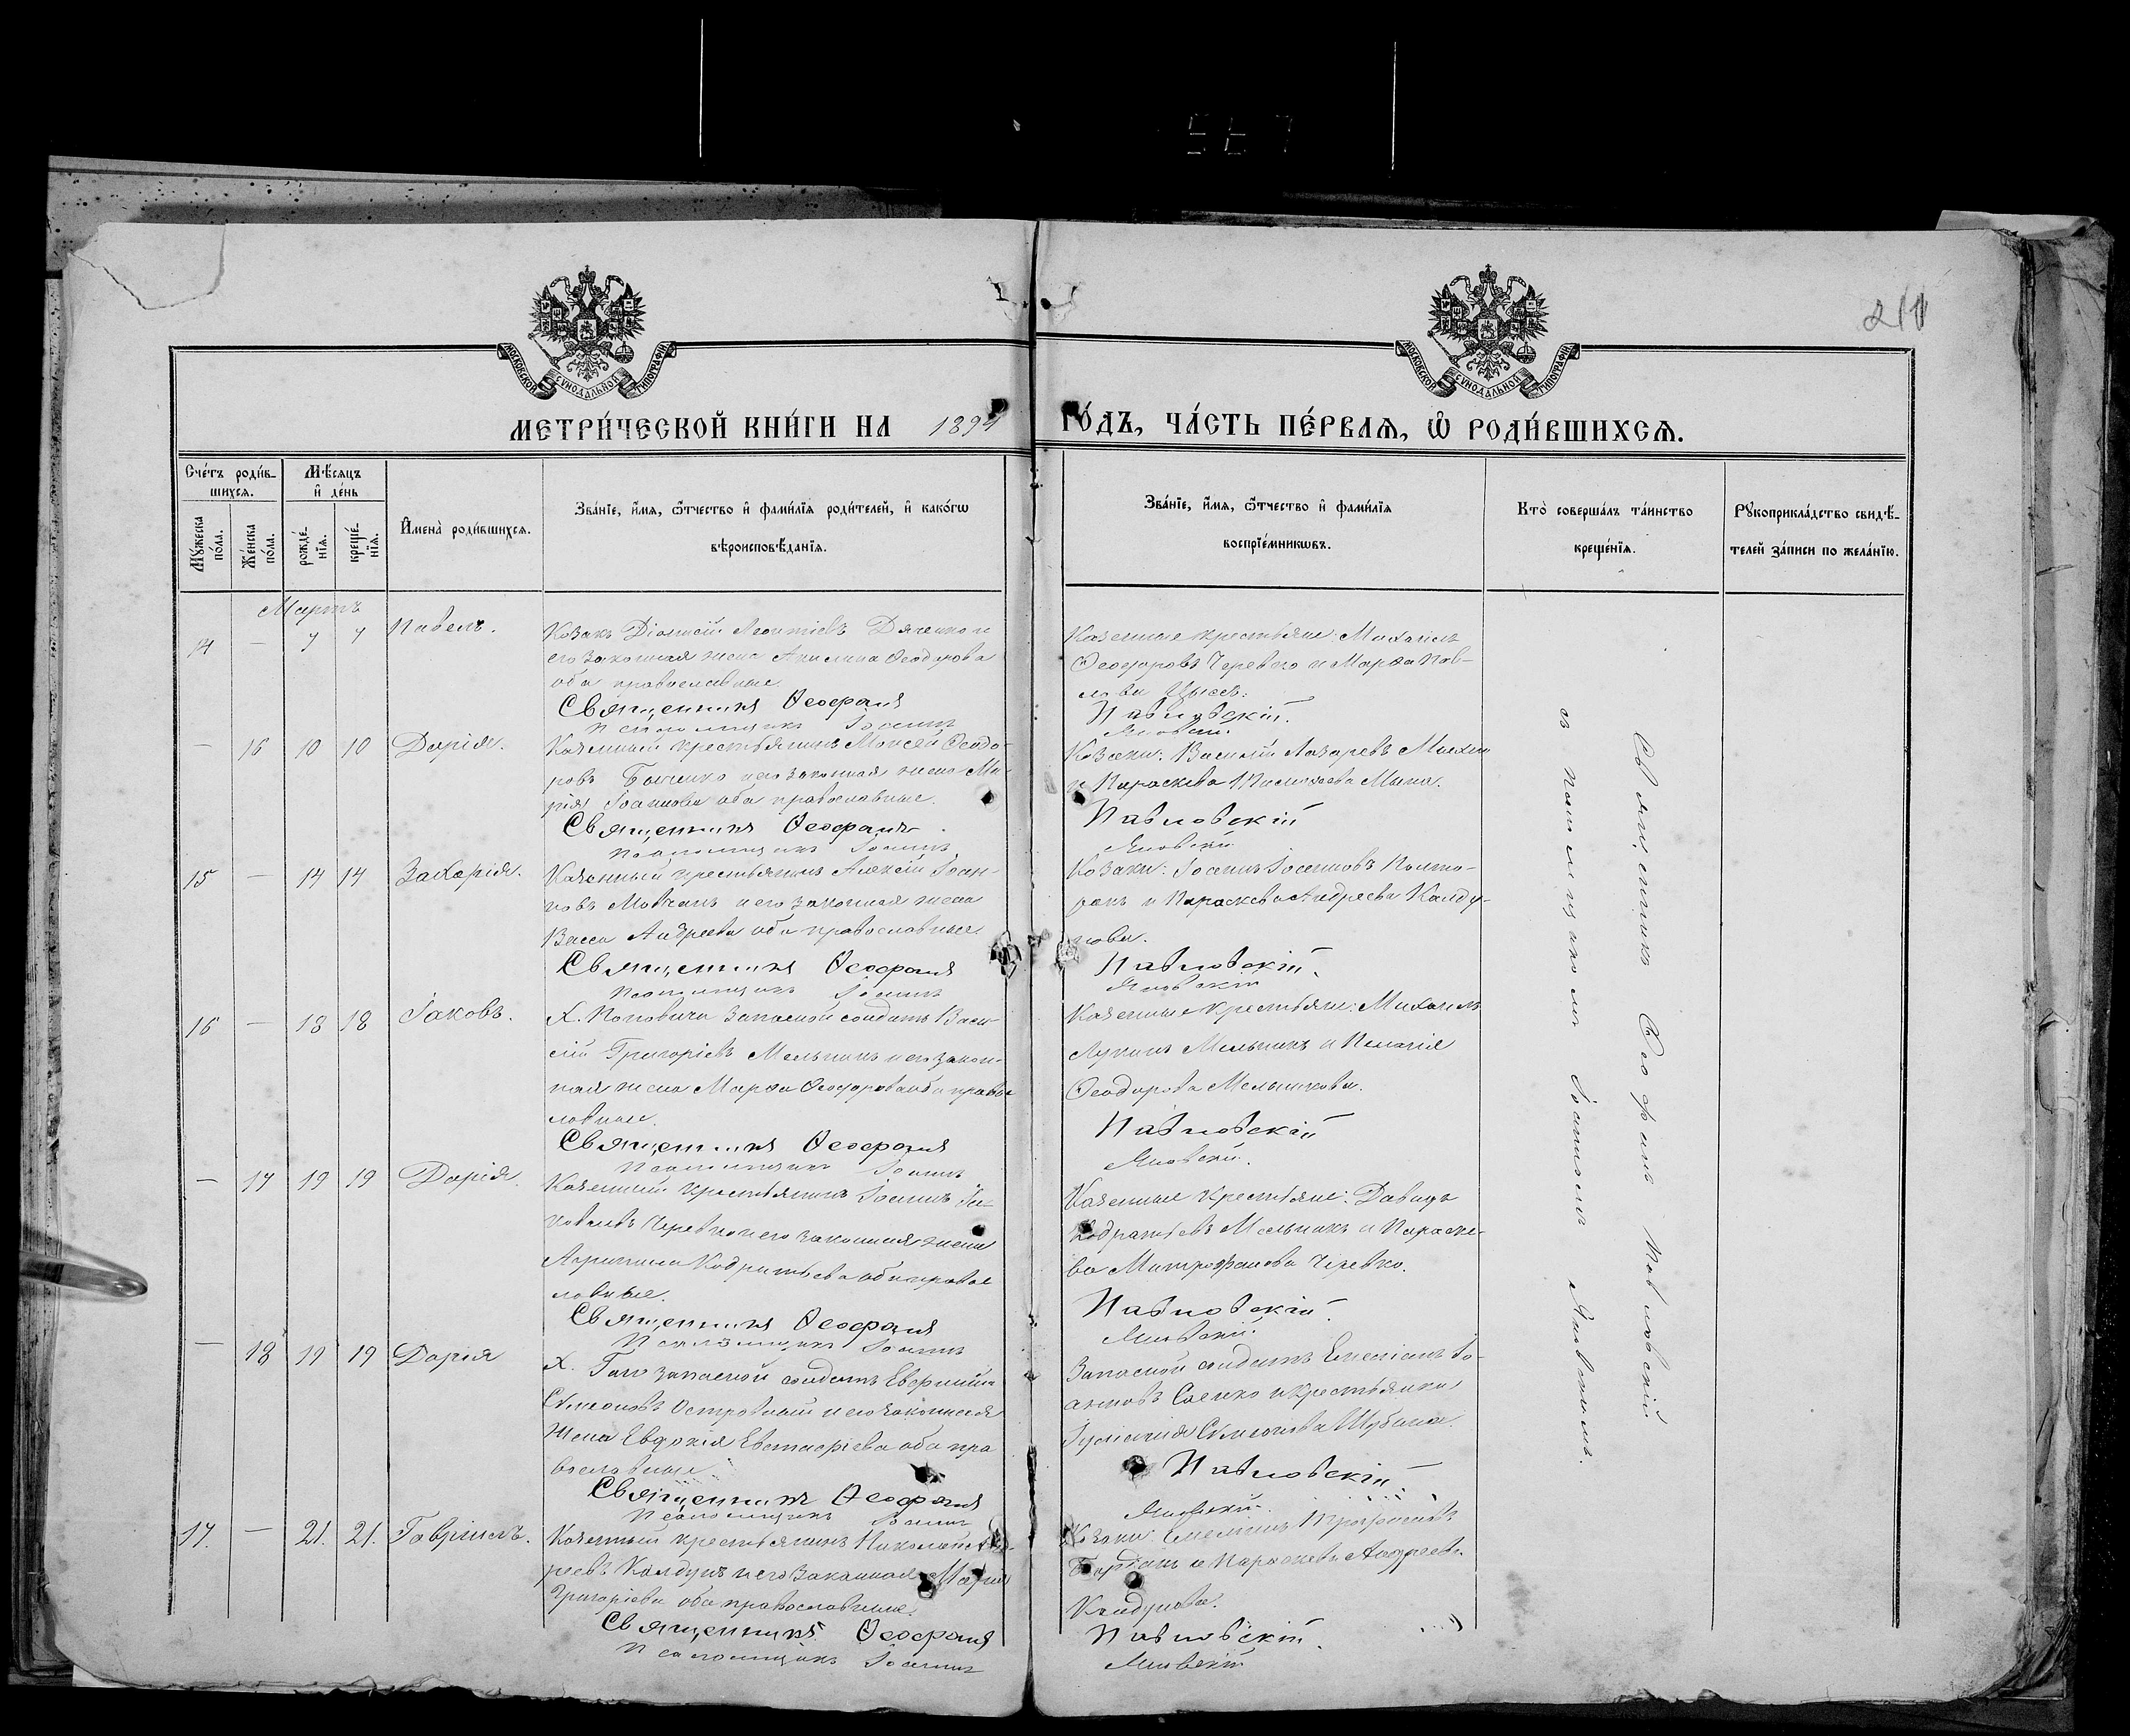 210
МОСКОВСКОЙ СѴНОДАЛЬНОЙ ТИПОГРАФІИ
МОСКОВСКОЙ СѴНОДАЛЬНОЙ ТИПОГРАФІИ
МЕТРИ́ЧЕСКОЙ КНИ́ГИ НА 1894 ГО́ДЪ, ЧА́СТЬ ПЕ́РВАѦ, Ѡ РОДИ́ВШИХСѦ.
Сче́тъ роди́в-
шихсѧ.
Мѣ́сѧцъ
и҆ де́нь
Мꙋ́жеска
по́ла.
Же́нска
по́ла.
рожде́-
нїѧ.
креще́-
нїѧ.
И҆мена̀ роди́вшихсѧ.
Зва́нїе, и҆́мѧ, ѻ҆́тчество и҆ фами́лїѧ роди́телей, и҆ како́гѡ
вѣроисповѣ́данїѧ.
Зва́нїе, и҆́мѧ, ѻ҆́тчество и҆ фами́лїѧ
воспрїе́мникѡвъ.
Кто̀ соверша́лъ та́инство
креще́нїѧ.
Рꙋкоприкла́дство свидѣ́-
телей за́писи по жела́нїю.
Мартъ
14 — 7 7 Павелъ.
Козакъ Діонисій Леонтіевъ Дяченко и
его законная жена Акилина Ѳеодорова
оба православные.
Священникъ Ѳеофанъ
Псаломщикъ Іоаннъ
Казенные крестьяне: Михаилъ
Ѳеодоровъ Черевко и Марѳа Пав-
лова
Павловскій.
Яновскій.
— 16 10 10 Дарія.
Казенный крестьянинъ Моисей Ѳеодо-
ровъ его законная жена Ма-
рія Іоаннова оба православные.
Священникъ Ѳеофанъ
Псаломщикъ Іоаннъ
Козаки: Василій Лазаревъ
и Параскева
Павловскій
Яновскій
15 — 14 14 Захарія.
Казенный крестьянинъ Алексій Іоан-
новъ Мовчанъ и его законная жена
Васса Андреева оба православные.
Священникъ Ѳеофанъ
Псаломщикъ Іоаннъ
Козаки: Іоаннъ Іоанновъ Полто-
ракъ и Параскева Андреева Калду-
нова.
Павловскій.
Яновскій
16 — 18 18 Іаковъ.
Х. Поповичи запасной солдатъ Васи-
лій Григоріевъ Мельникъ и его закон-
ная жена Марѳа Ѳеодорова оба правос
лавные.
Священникъ Ѳеофанъ
Псаломщикъ Іоаннъ
Казенные крестьяне: Михаилъ
Лукинъ Мельникъ и Пелагія
Ѳеодорова Мельникова.
Павловскій
Яновскій.
— 17 19 19 Дарія.
Казенный крестьянинъ Іоаннъ
Черевко и его законная жена
Агрипина Кодратьева оба правос
лавные.
Священникъ Ѳеофанъ
Псаломщикъ Іоаннъ
Казенные крестьяне: Давидъ
Кодратьевъ Мельникъ и Параске-
ва Митрофанова Черевко.
Павловскій.
Яновскій.
— 18 19 19 Дарія
Х. запасной солдатъ Евфимій
Сѵмеоновъ Островный и его законная
жена Евдокія Евстафіева оба пра
вославные.
Священникъ Ѳеофанъ
Псаломщикъ Іоаннъ
Запасной солдатъ Емеліанъ Іо-
анновъ Саенко и крестьянка
Іуліанія Сѵмеонова
Павловскій.
Яновскій.
17. — 21. 21. Гавріилъ.
Казенный крестьянинъ Николай Анд-
реевъ Калдунъ и его законная Марія
Григоріева оба православные.
Священникъ Ѳеофанъ
Псаломщикъ Іоаннъ
Козаки: Емеліанъ Трофимовъ
и Параскева Андреева
Калдунова.
Павловскій.
Яновскій
Священникъ Ѳеофанъ Павловскій
съ псаломщикомъ Іоанномъ Яновскимъ.